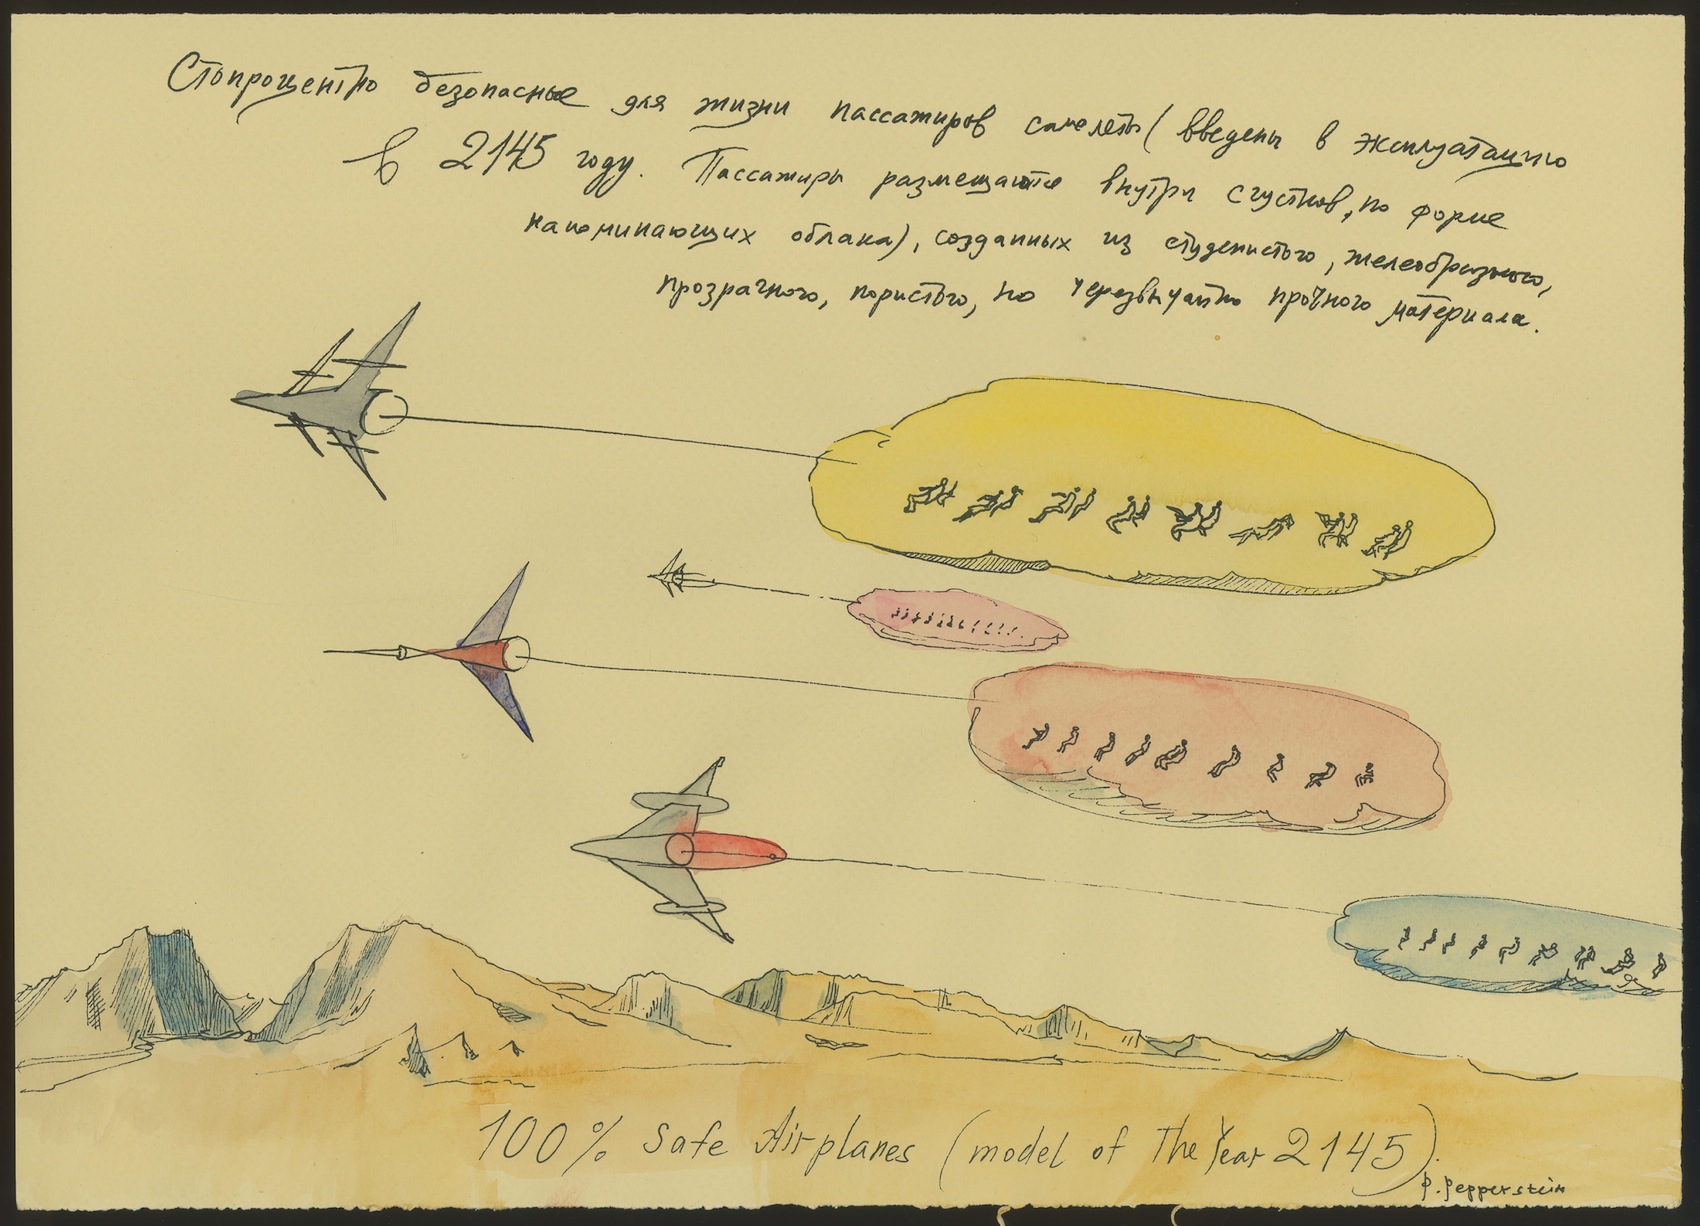 Стопроцентно безопасные для жизни пассажиров самолеты (введены в эксплуатацию
в 2145 году. Пассажиры размещаются внутри сгустков, по форме
напоминающих облака), созданных из студенистого, желеобразного,
прозрачного, пористого, но черезвычайно прочного материала.
100% Safe Airplanes (model of the Year 2145).
P. Pepperstein